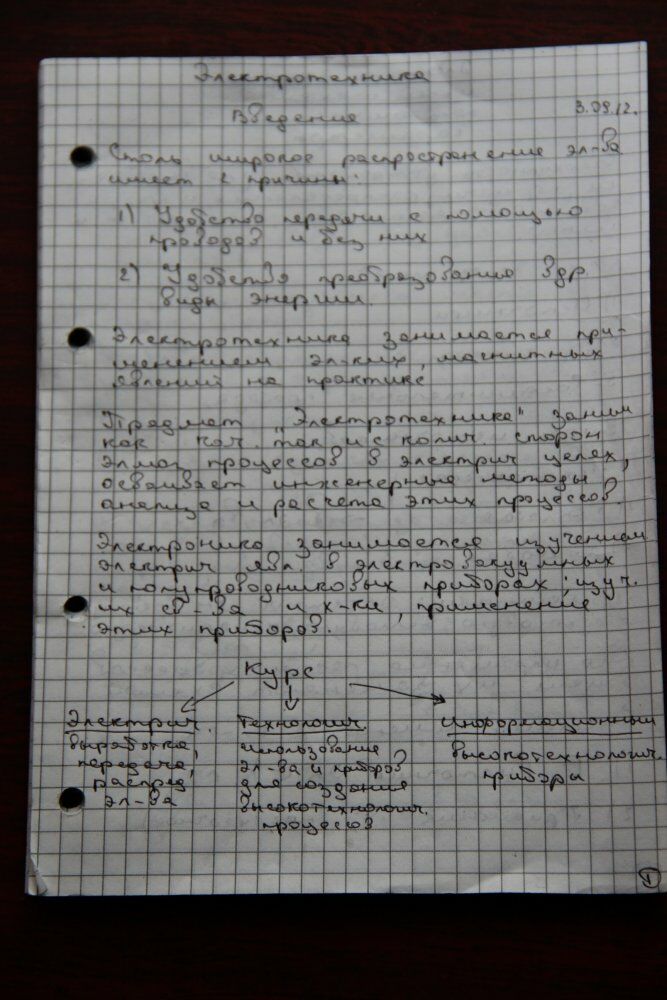 Электротехника
Введение 3.09.12.
Столь широкое распространение эл-ва
имеет 2 причины:
1) Удобство передачи с помощью
проводов и без них
2) Удобства преобразования в др
виды энергии.
Электротехника занимается при-
менением эл-ких, магнитных
явлений на практике
Предмет „Электротехника" заним
как кач. так и с колич. сторон
элмаг процессов в электрич цепях,
осваивает инженерные методы
анализа и расчета этих процессов.
Электроника занимается изучением
электрич явл. в электровакуумных
и полупроводниковых приборах; изуч.
их св-ва и х-ки, применение
этих приборов.
Курс
Электрич. Технологич. Информационный
выработка, использование высокотехнологич.
передача, эл-ва и приборов приборы
распред для создания
эл-ва высокотехнологич.
процессов
1